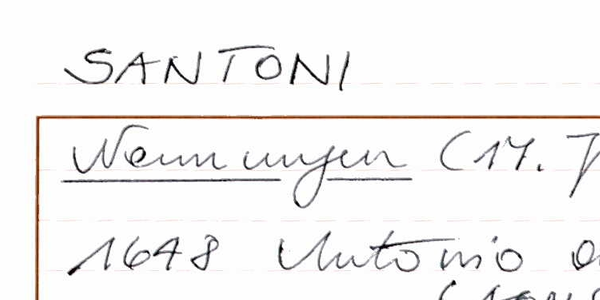 SANTONI
Nennungen (17. J
1648 Antonio